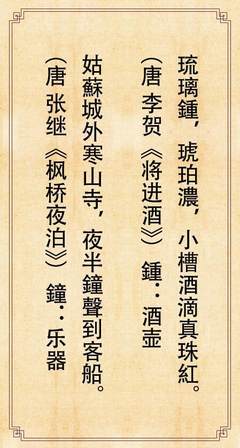 琉璃鍾，琥珀濃，小槽酒滴真珠紅。
（唐 李贺《将进酒》） 鍾：酒壶
姑蘇城外寒山寺，夜半鐘聲到客船。
（唐 张继《枫桥夜泊》） 鐘：乐器